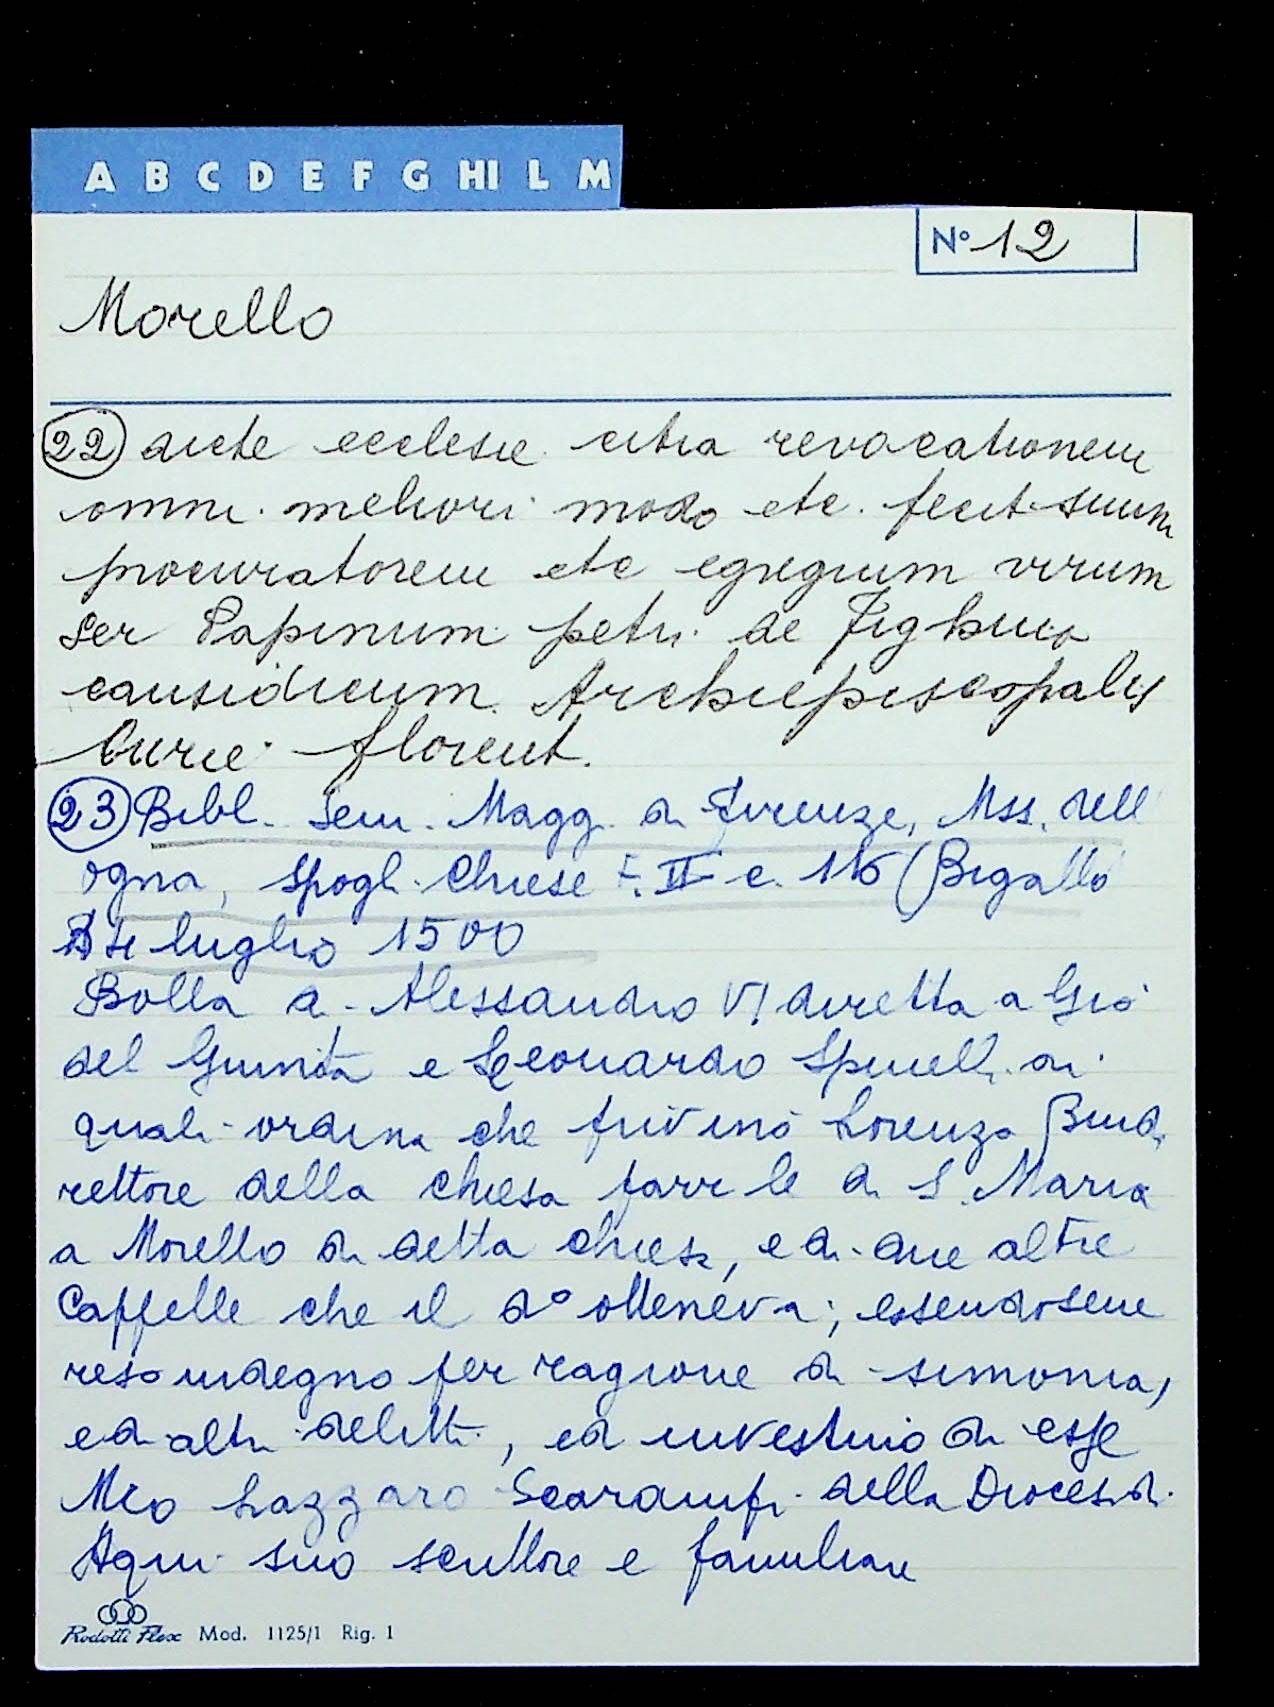 A B C D E F G HI L M
N° 12
Morello
22 dicte ecclesie citra revocationem
omni meliori modo etc. fecit suum
procuratorem etc egregium virum
ser Papinum petri de
causidicum Archiepiscopalis
Curie florent.
23 Bibl. Sem. Magg. di Firenze, Mss. dell
ogna, spogl. Chiese F. II c. 116 (Bigallo
luglio 1500
Bolla di Alessandro VI diretta a Gio
del e Leonardo Spinelli ai
quali ordina che privino Lorenzo
rettore della chiesa parr le di S. Maria
a Morello di detta chiesa, e di due altre
Cappelle che il do otteneva; essendosene
reso indegno per ragione di simonia,
ed altri delitti, ed investino di esse
Meo Lazzaro Scarampi della Diocesi di
Aqui suo scrittore e familiare
Rodotti Flex Mod. 1125/1 Rig. 1